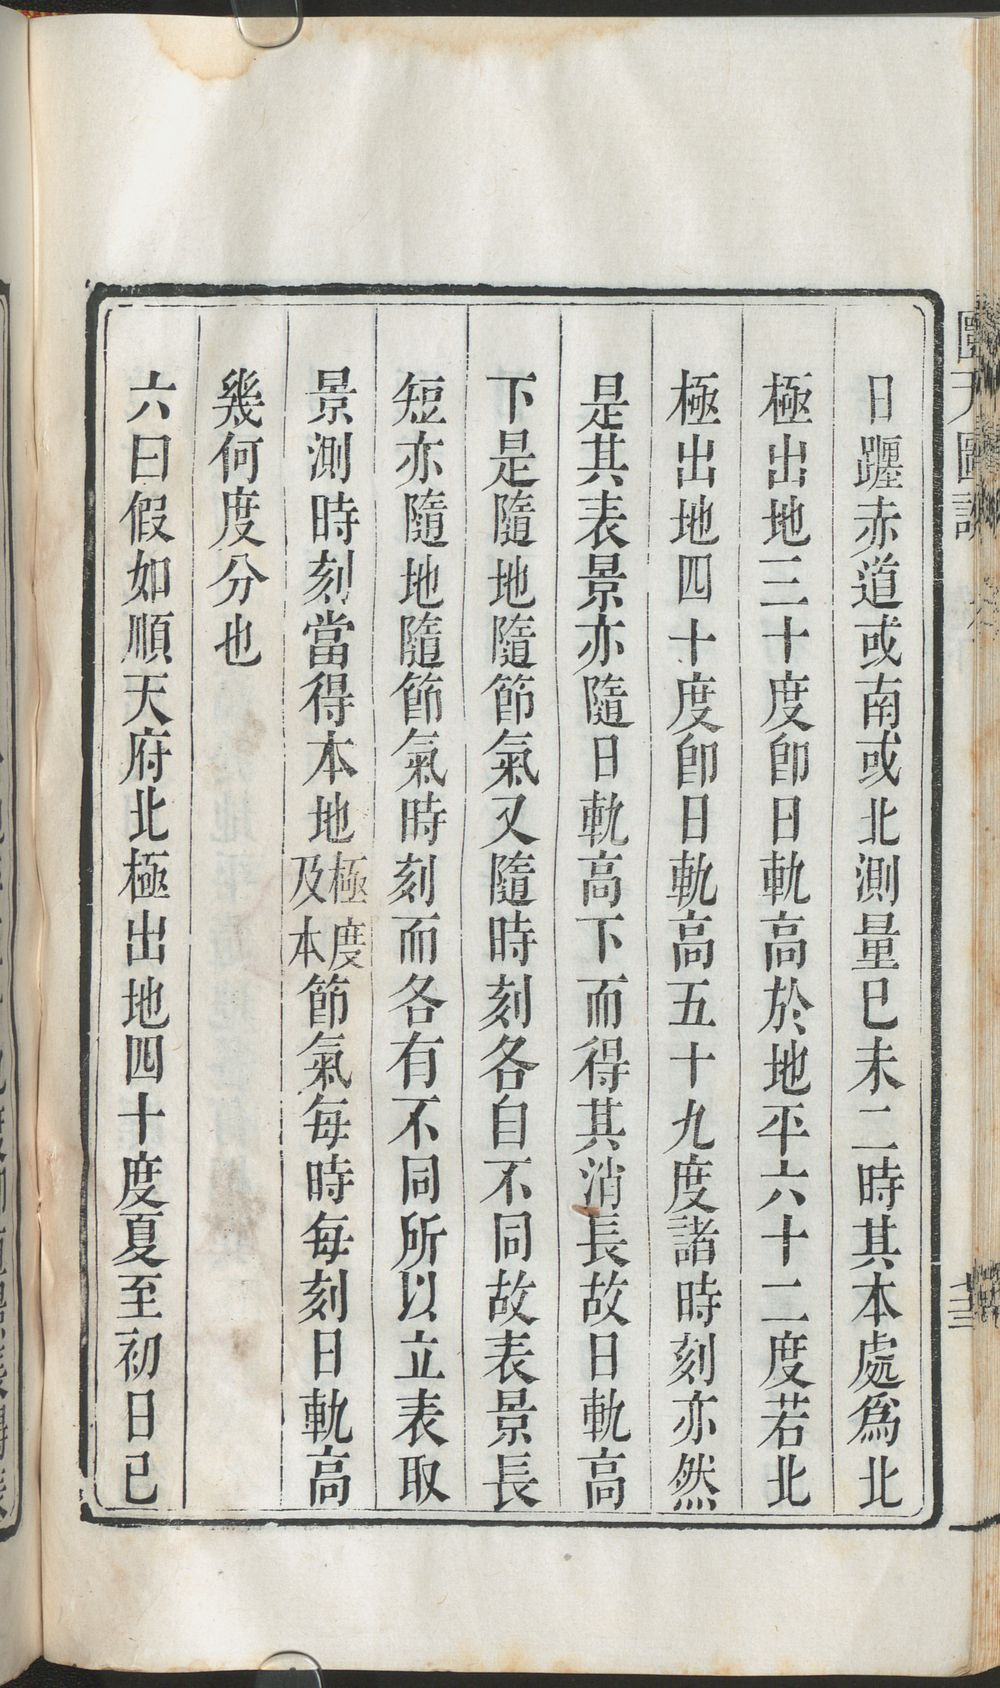 日躔赤道或南或北測量巳未二時其本處爲北
極出地三十度卽日軌高於地平六十二度若北
極出地四十度卽日軌高五十九度諸時刻亦然
是其表景亦隨日軌高下而得其消長故日軌高
下是隨地隨節氣又隨時刻各自不同故表景長
短亦隨地隨節氣時刻而各有不同所以立表取
景測時刻當得本地極度及本節氣每時每刻日軌高
幾何度分也
六曰假如順天府北極出地四十度夏至初日巳